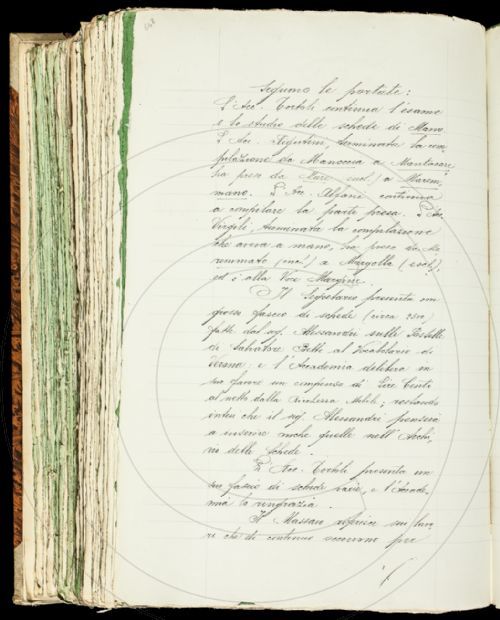 148
Seguono le portate:
L'Acc. Tortoli continua l'esame
e lo studio delle schede di Mano.
L'Acc. Rigutini, terminata la com-
pilazione da Manocchia a Mantacare
ha preso da Mare (incl.) a Marem-
mano. L'Acc. Alfani continua
a compilare la parte presa. L'Acc.
Virgili, terminata la compilazione
che aveva a mano, ha preso da Ma
remmata (incl.) a Margolla (escl.),
ed è alla Voce Margine.
Il Segretario presenta un
grosso fascio di schede (circa
fatte dal sig. Alessandri sulle Postille
di Salvatore Betti al Vocabolario di
Verona, e l'Accademia delibera in
suo favore un compenso di Lire Cento
al netto dalla Ricchezza Mobile; restando
inteso che il sig. Alessandri penserà
a inserire anche quelle nell'Archi
vio delle Schede.
L'Acc. Tortoli presenta un
suo fascio di schede varie, e l'Accade-
mia lo ringrazia.
Il Massaio riferisce sui lavo
ri che di continuo occorrono per